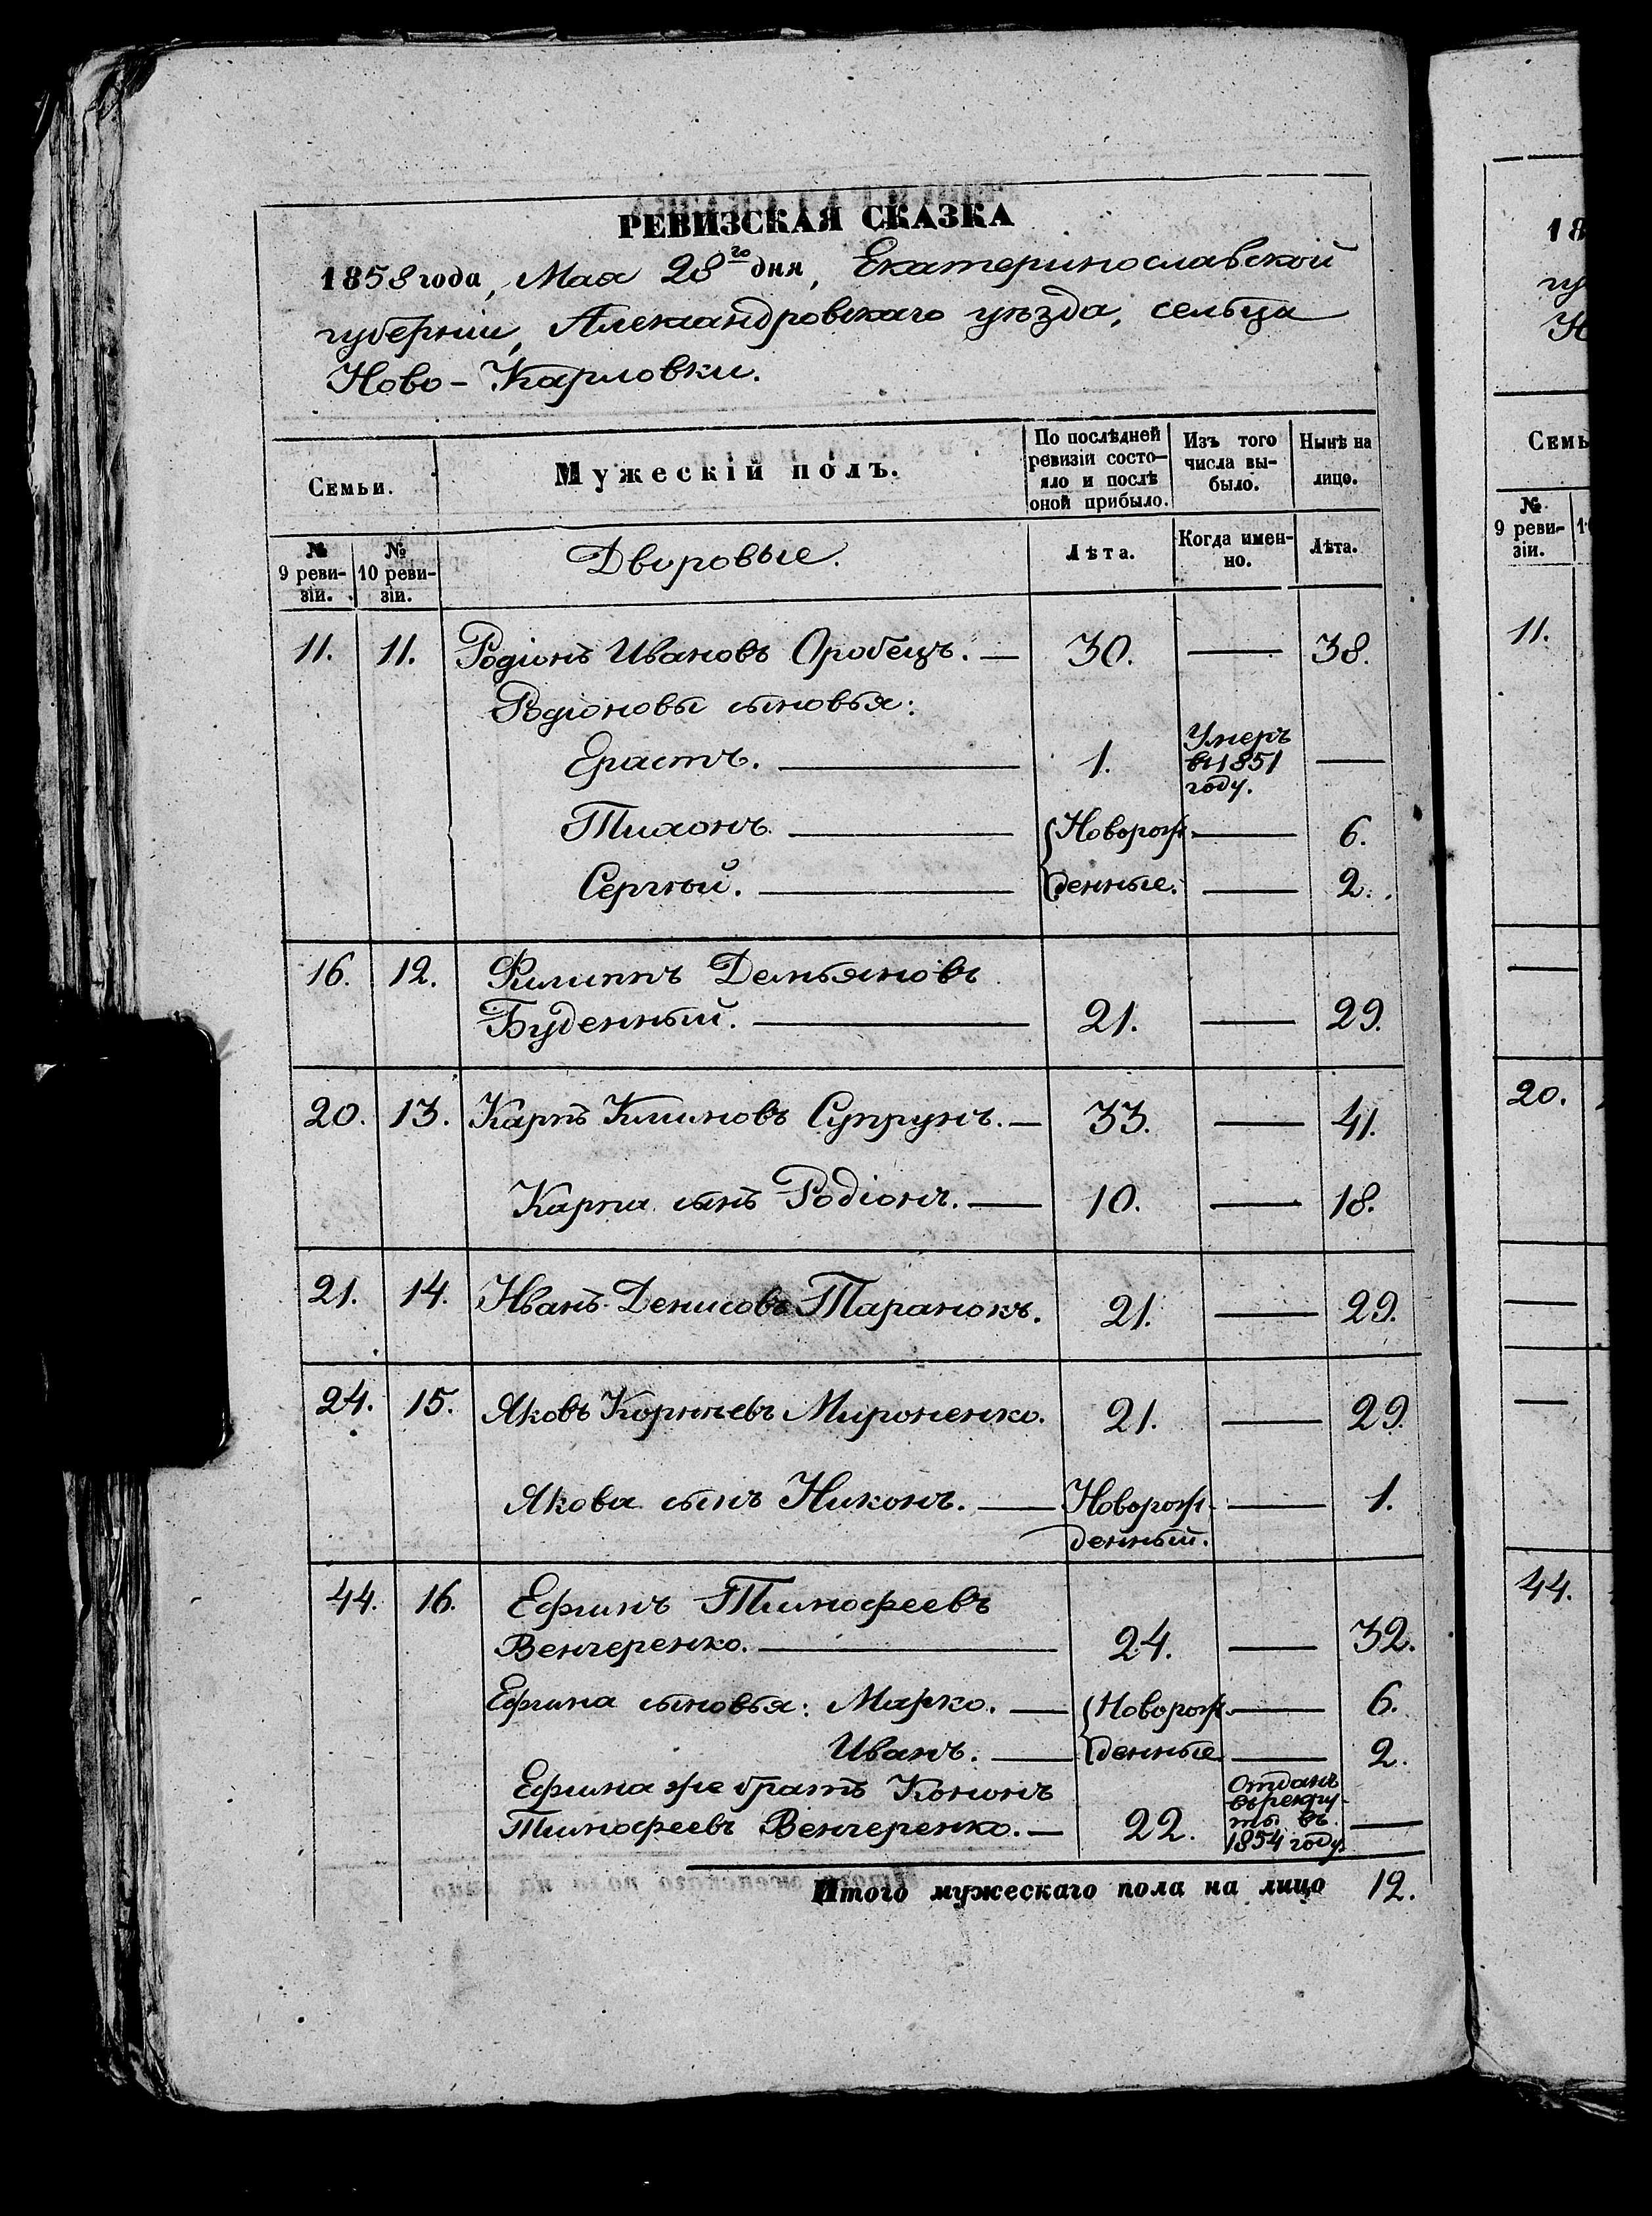 РЕВИЗСКАЯ СКАЗКА
1858 года, Мая 28го дня, Екатеринославской
губерніи, Александровскаго уѣзда, сельца
Ново-Карловки.
Семьи.
Мужескій полъ.
По послѣдней ревизіи состо-
яло и послѣ оной прибыло.
Изъ того числа вы-
было.
Нынѣ на лицо.
№ 9 реви-
зіи.
№ 10 реви-
зіи.
Дворовые.
Лѣта.
Когда имен-
но.
Лѣта.
11. 11. Родіонъ Ивановъ Оробецъ. — 30. — 38.
Родіоновы сыновья:
Ерастъ. — 1. Умеръ въ 1851 году. —
Тихонъ. — {Новорож- — 6.
Сергѣй. — {денные. — 2.
16. 12. Филиппъ Демьяновъ
Буденный. — 21. — 29.
20. 13. Карпъ Климовъ Супрунъ. — 33. — 41.
Карпа сынъ Родіонъ. — 10. — 18.
21. 14. Иванъ Денисовъ Таранокъ. 21. — 29.
24. 15. Яковъ Корнѣевъ Мироненко. 21. — 29.
Якова сынъ Никонъ. — Новорож- — 1.
денный.
44. 16. Ефимъ Тимофеевъ
Венгеренко. — 24. — 32.
Ефима сыновья: Марко. — {Новорож- — 6.
Иванъ. — {денные. — 2.
Ефима же братъ Кононъ
Тимофеевъ Венгеренко. — 22. Отданъ въ рекру-
ты въ 1854 году. —
Итого мужескаго пола на лицо 12.
18
гу
Н
Семь
№ 9 реви-
зіи.
1
11.
—
20.
—
—
44.